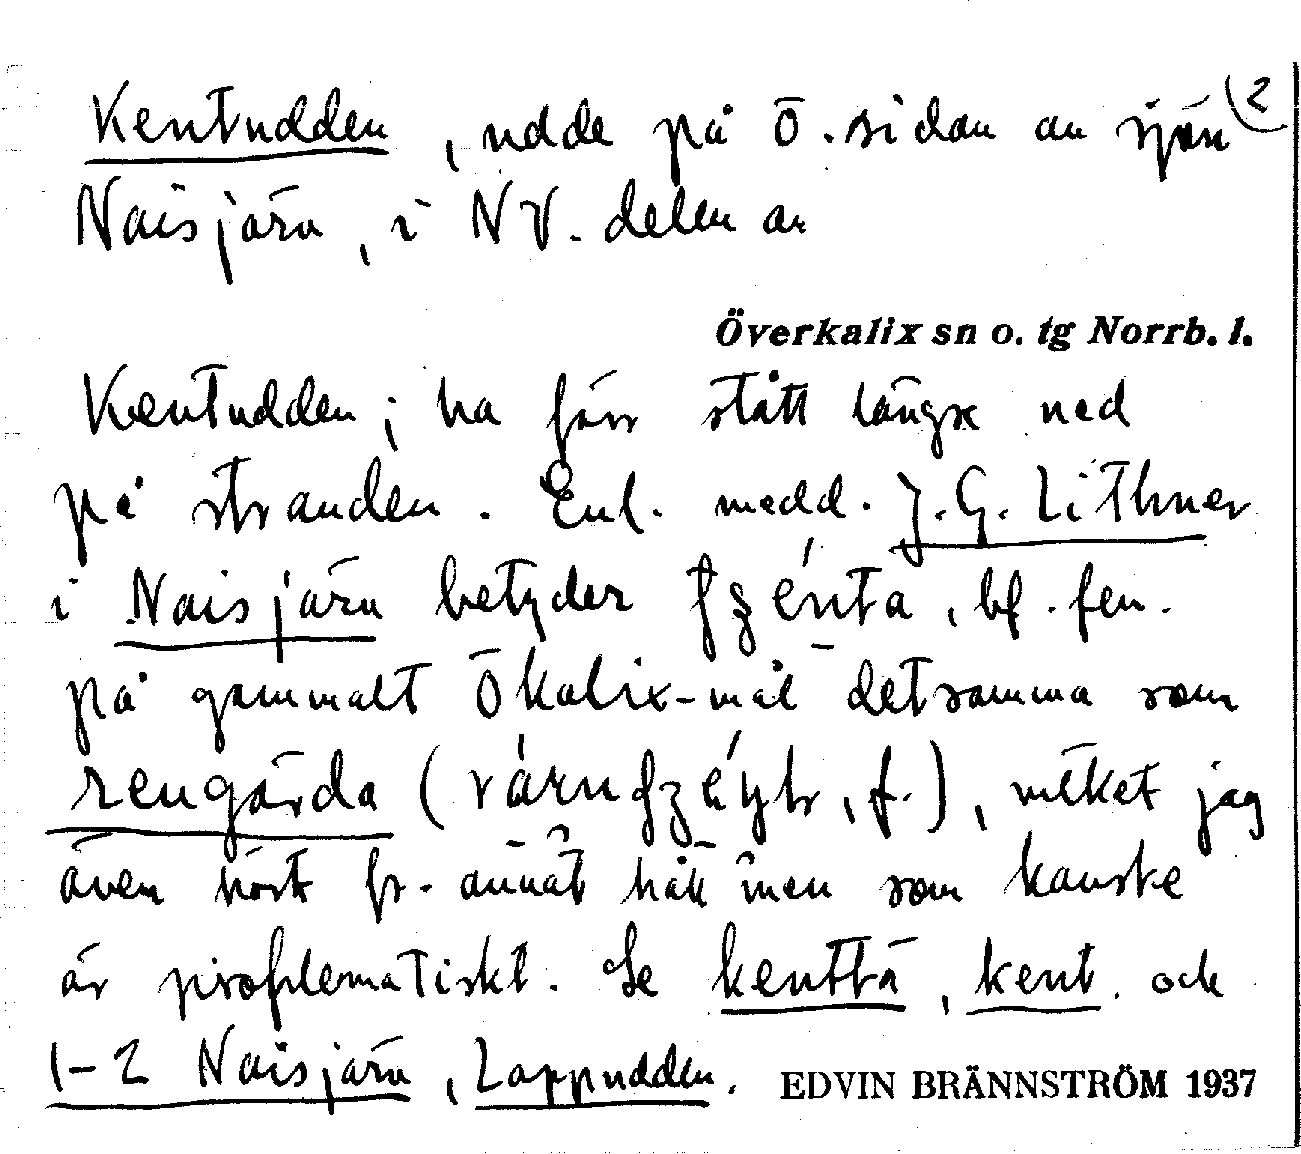 Kentudden, udde på Ö. sidan av sjön (2
Naisjärv, i NV. delen av
Överkalix sn o. tg Norrb. l.
Kentudden; ha förr stått längre ned
på stranden. Enl. medd. J.G. Lithner
i Naisjärv betyder bf. fen.
på gammalt Ökalix-mål detsamma som
rengärda f.), vilket jag
även hört fr. annat håll men som kanske
är problematiskt. Se kenttä, kent och
1-2 Naisjärv, Lappudden. EDVIN BRÄNNSTRÖM 1937